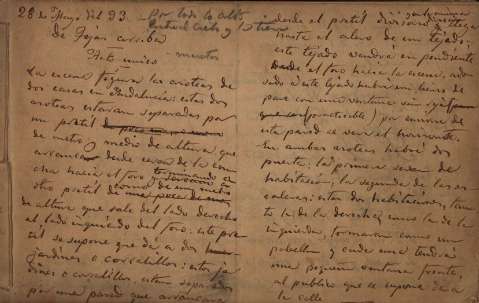 28 de Mayo del 93. - Por todo lo alto
entre el cielo y la tierra
de Tejas arriba
Acto único - mutis
La escena figura las azoteas de
dos casas en Andalucía: estas dos
azoteas estarán separadas por
un pretil
de metro y medio de altura que
arrancando desde cerca de la con-
cha hacia el foro terminando en
otro pretil
de altura que sale del lado derecho
al lado izquierdo del foro: este pre-
til se supone que dá a dos
jardines o corralillos: estos jar-
dines o corralillos, estan separados
por una pared que arrancara
desde el pretil divisorio
hasta el alero de un tejado;
este tejado vendrá en pendiente
desde el foro hacia la escena, ado-
sado á este tejado habrá un lienzo de
pared con una ventana sin reja
(practicable) por encima de
esta pared se verá el horizonte.
En ambas azoteas habrá dos
puertas, la primera será de
habitación, la segunda de las es-
caleras: estas dos habitaciones, tan-
to la de la derecha, como la de la
izquierda, formarán como un
pabellon y cada una tendrá
una pequeña ventana frente
al público que se supone dá a
la calle